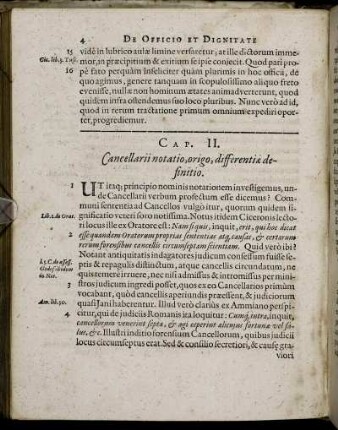 4 DE OFFICIO ET DIGNITATE
15 vidè in lubrico aulæ limine versaretur; at ille dictorum imme-
Cic. lib. 5. Tusc. mor, in præcipitium & exitium se ipse coniecit. Quod pari pro-
16 pè fato perquàm infeliciter quàm plurimis in hoc officii, de
quo agimus, genere tanquam in scopulosissimo aliquo freto
evenisse, nulla non hominum ætates animadverterunt, quod
quidem infra ostendemus suo loco pluribus. Nunc verò ad id,
quod in rerum tractatione primum omnium expediri opor-
tet, progrediemur.
CAP. II.
Cancellarii notatio, origo, differentiæ de-
finitio.
1 UT itaq; principio nominis notationem investigemus, un-
de Cancellarii verbum profectum esse dicemus? Com-
muni sententia ad Cancellos vulgò itur, quorum quidem si-
gnificatio veteri foro notissima. Notus itidem Ciceronis lecto-
Lib. 1. de Orat. ri locus ille ex Oratore est: Nam si quis, inquit, erit, qui hoc dicat
2 esse quoddam Oratorum proprias sententias atq; causas, & certarum
rerum forensibus cancellis circumseptam scientiam. Quid verò ibi?
Notant antiquitatis indagatores judicum consessum fuisse se-
ptis & repagulis distinctum, atque cancellis circundatum, ne
quis temerè irruere, nec nisi admissus & intromissus per mini-
3 stros judicum ingredi posset, quos ex eo Cancellarios primùm
vocabant, quòd cancellis aperiundis præessent, & judiciorum
Am. lib. 30. quasi Jani haberentur. Illud verò clariùs ex Ammiano perspi-
citur, qui de judiciis Romanis ita loquitur: Cumq́; intra, inquit,
4 cancellorum venerint septa, & agi ceperint alicujus fortunæ vel sa-
lus, &c. Illustri inditio forensium Cancellorum, quibus judicii
locus circumseptus erat. Sed & consilio secretiori, & causæ gra-
viori